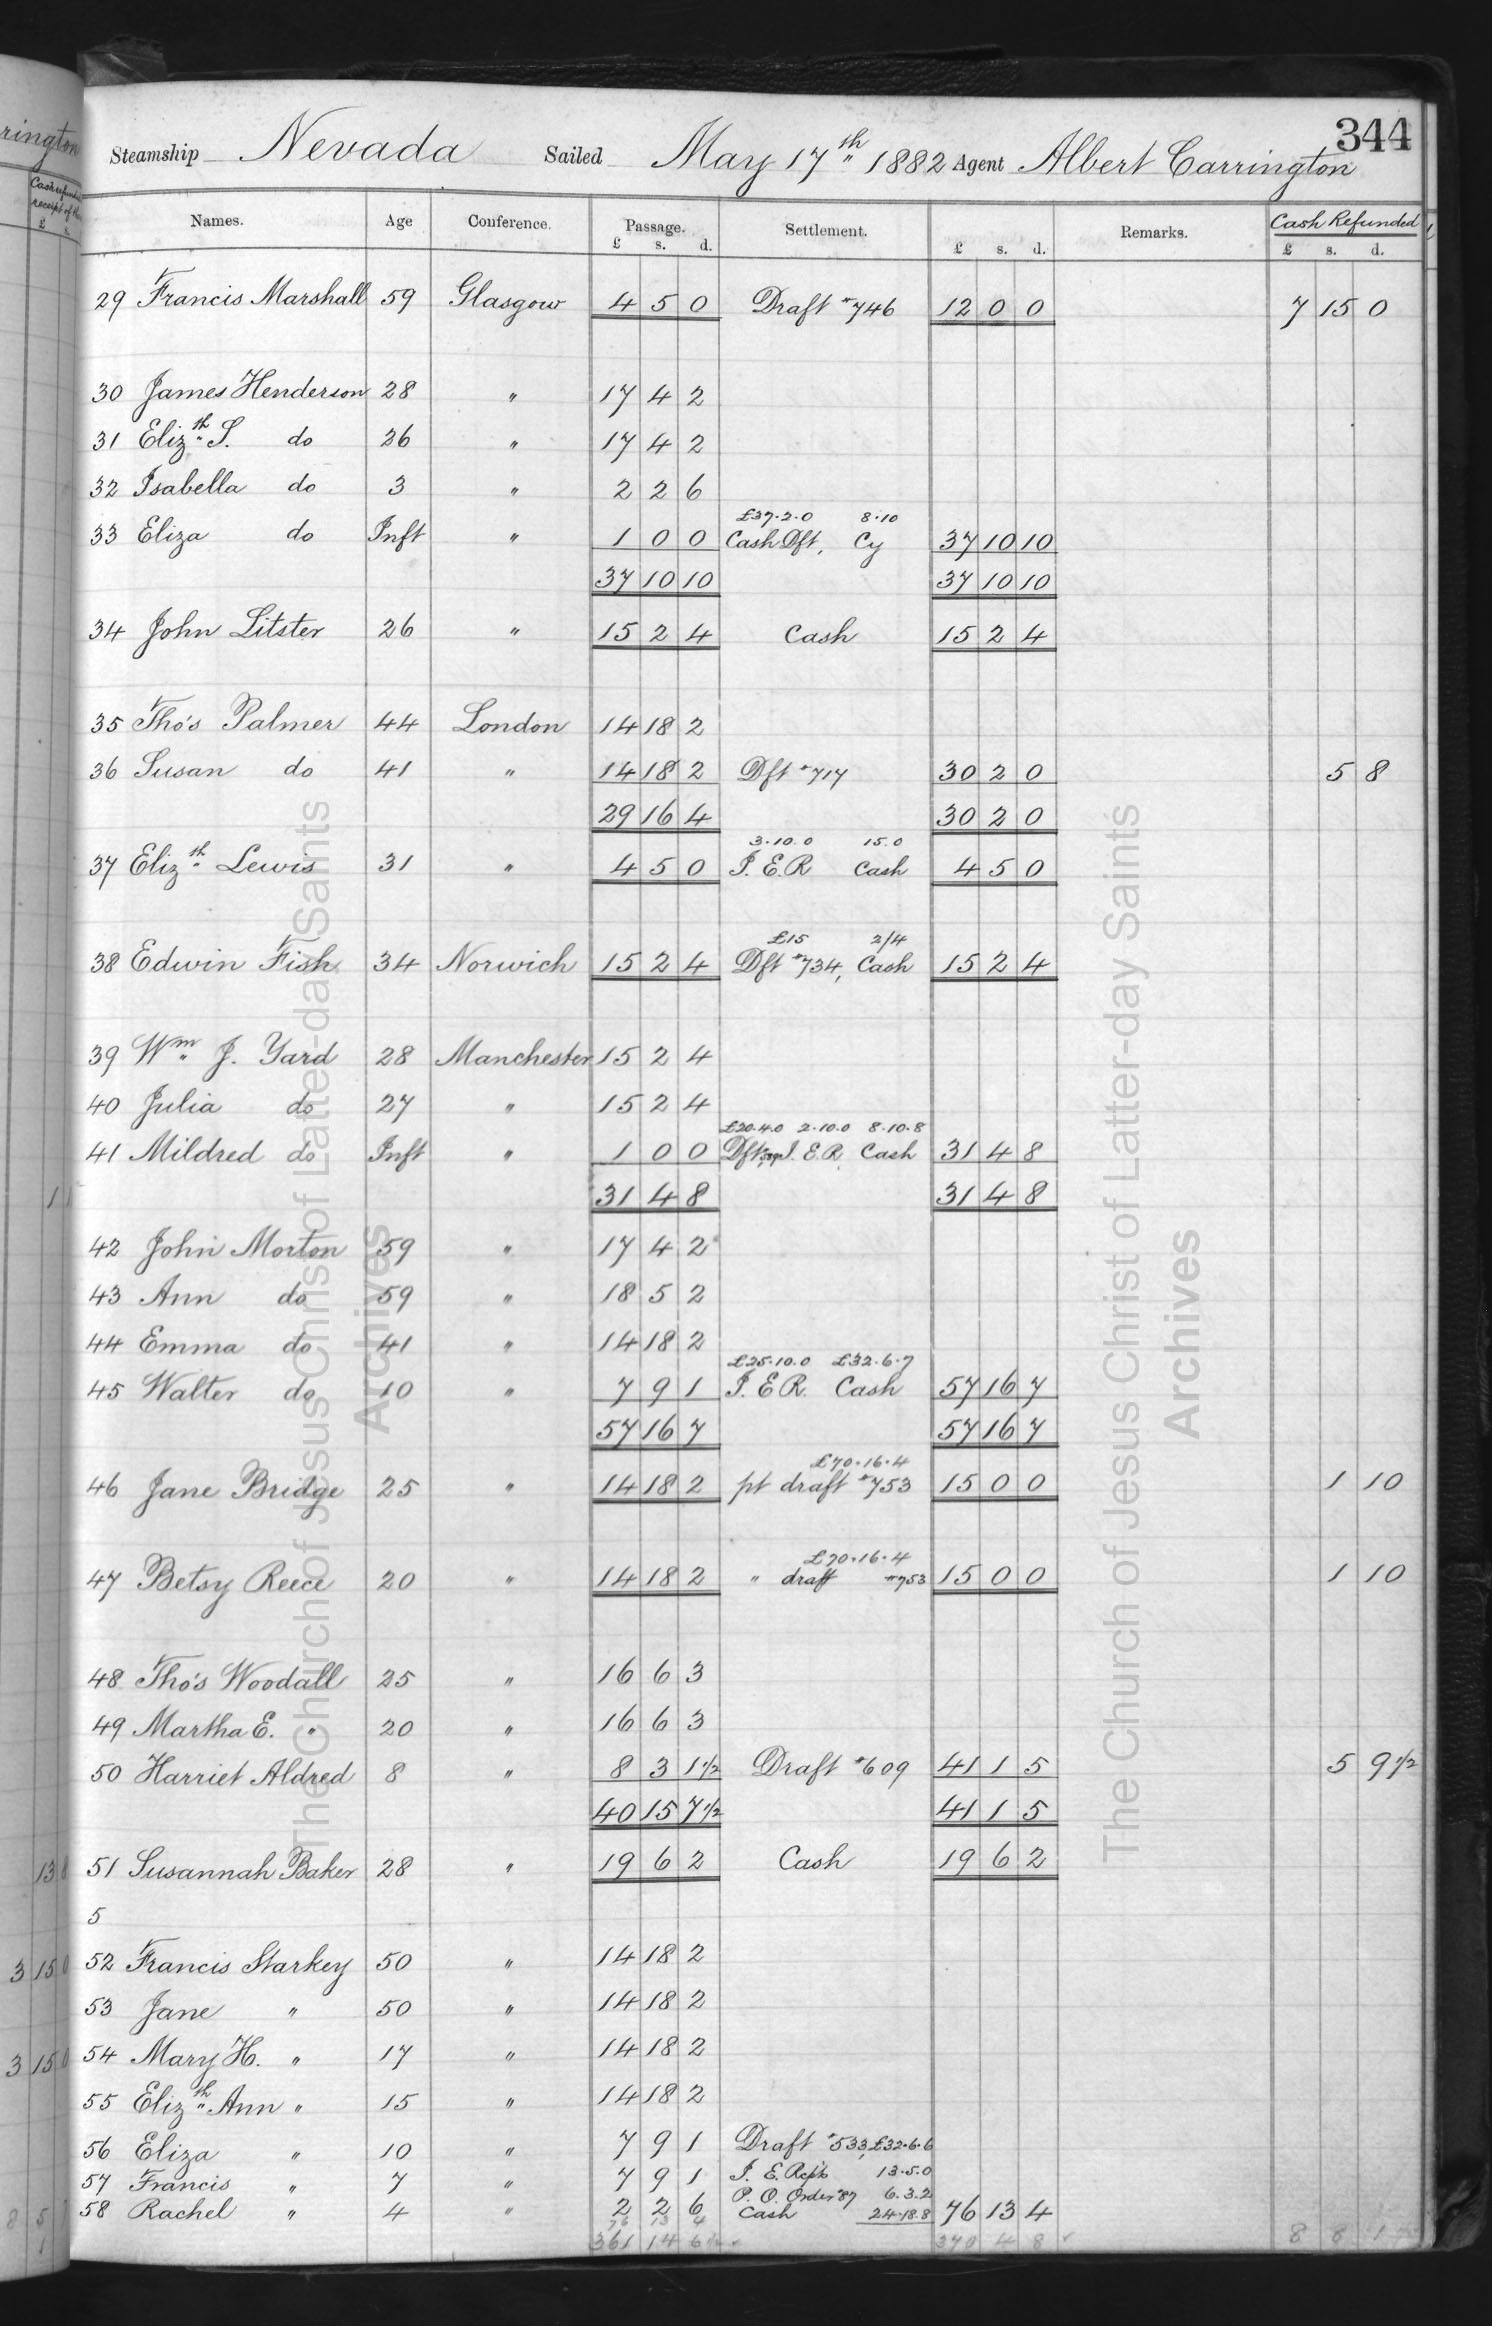 344
Steamship Nevada Sailed May 17th 1882 Agent Albert Carrington
Names. Age Conference. Passage. Settlement. Remarks. Cash Refunded
£ s. d. £ s. d. £ s. d.
29 Francis Marshall 59 Glasgow 4 5 0 Draft #746 12 0 0 7 15 0
30 James Henderson 28 " 17 4 2
31 Elizth S. do 26 " 17 4 2
32 Isabella do 3 " 2 2 6
£37.2.0 8.10
33 Eliza do Inft " 1 0 0 Cash Dft, Cy 37 10 10
37 10 10 37 10 10
34 John Litster 26 " 15 2 4 Cash 15 2 4
35 Tho's Palmer 44 London 14 18 2
36 Susan do 41 " 14 18 2 Dft #717 30 2 0 5 8
29 16 4 30 2 0
3.10.0 15.0
37 Elizth Lewis 31 " 4 5 0 I.E.R Cash 4 5 0
£15 2/4
38 Edwin Fish 34 Norwich 15 2 4 Dft #734, Cash 15 2 4
39 Wm J. Yard 28 Manchester 15 2 4
40 Julia do 27 " 15 2 4
£20.4.0 2.10.0 8.10.8
41 Mildred do Inft " 1 0 0 Dft I.E.R. Cash 31 4 8
31 4 8 31 4 8
42 John Morton 59 " 17 4 2
43 Ann do 59 " 18 5 2
44 Emma do 41 " 14 18 2
£25.10.0 £32.6.7
45 Walter do 10 " 7 9 1 I.E.R. Cash 57 16 7
57 16 7 57 16 7
£70.16.4
46 Jane Bridge 25 " 14 18 2 pt draft #753 15 0 0 1 10
£70.16.4
47 Betsy Reece 20 " 14 18 2 " draft #753 15 0 0 1 10
48 Tho's Woodall 25 " 16 6 3
49 Martha E. " 20 " 16 6 3
50 Harriet Aldred 8 " 8 3 1 1/2 Draft #609 41 1 5 5 9 1/2
40 15 7 1/2 41 1 5
51 Susannah Baker 28 " 19 6 2 Cash 19 6 2
5
52 Francis Starkey 50 " 14 18 2
53 Jane " 50 " 14 18 2
54 Mary H. " 17 " 14 18 2
55 Elizth Ann " 15 " 14 18 2
56 Eliza " 10 " 7 9 1 Draft #533, £32.6.6
57 Francis " 7 " 7 9 1 I.E. Rcpts 13.5.0
P.O. Order #87 6.3.2
58 Rachel " 4 " 2 2 6 Cash 24.18.8 76 13 4
76 13 4
361 14 6 1/2 370 4 8 8 8 1
The Church of Jesus Christ of Latter-day Saints
Archives
The Church of Jesus Christ of Latter-day Saints
Archives